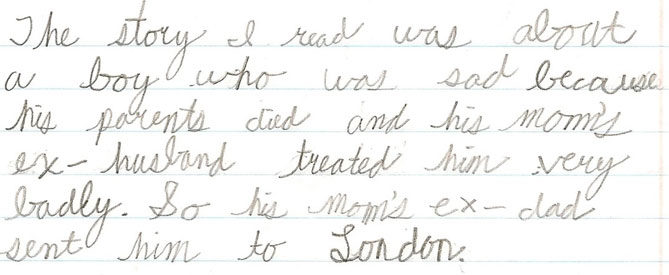 The story I read was about
a boy who was sad because
his parents died and his mom's
ex-husband treated him very
badly. So his mom's ex-dad
sent him to London.